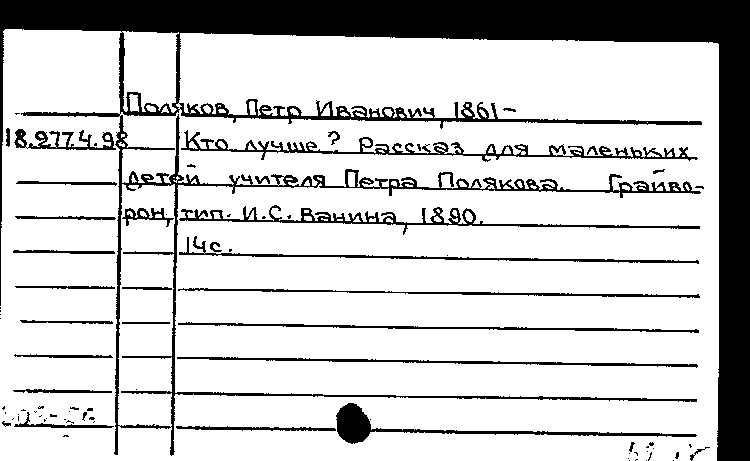 Поляков, Петр Иванович, 1861-
18.277.4.98 Кто лучше? Рассказ для маленьких
детей учителя Петра Полякова. Грайво-
рон, тип. И.С. Ванина, 1890.
14с.